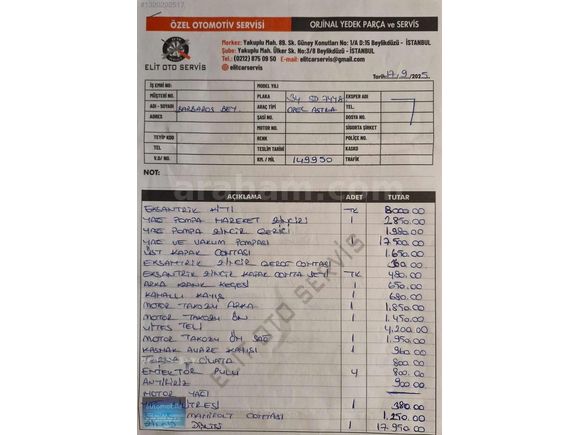 #1320293517
ÖZEL OTOMOTİV SERVİSİ
ORJİNAL YEDEK PARÇA ve SERVİS
ELİT OTO SERVİS
Merkez: Yakuplu Mah. 89. Sk. Güney Konutları No: 1/A D:15 Beylikdüzü - İSTANBUL
Şube: Yakuplu Mah. Ülker Sk. No:3/8 Beylikdüzü - İSTANBUL
Tel.: (0212) 875 09 50 E-mail: elitcarservis@gmail.com
elitcarservis
Tarih: 17.9./2025
İŞ EMRİ NO: MODEL YILI
MÜŞTERİ NO: PLAKA 34 SD 7448 EKSPER ADI
ADI - SOYADI BARBAROS BEY. ARAÇ TİPİ OPEL ASTRA TEL.
ADRES ŞASİ NO: DOSYA NO:
MOTOR NO: SİGORTA ŞİRKET
TEYİP KOD RENK POLİÇE NO:
TEL TESLİM TARİHİ KASKO
V.D/ NO: KM. / MİL 149950 TRAFİK
NOT:
arabam.com
AÇIKLAMA ADET TUTAR
EKSANTRİK MİTİ TK 8000.00
YAĞ POMPA HAREKET ZİNCİRİ 1 2.850.00
YAĞ POMPA ZİNCİR GERİCİ 1 1.980.00
YAĞ VE VAKUM POMPASI 1 17.500.00
ÜST KAPAK CONTASI 1 1.650.00
EKSANTRİK ZİNCİR GERGİ CONTASI 1 300.00
EKSANTRİK ZİNCİR KAPAK CONTA SETİ TK 480.00
ARKA KRANK KEÇESİ 1 650.00
KANALLI KAYIŞ 1 680.00
MOTOR TAKOZU ARKA 1 1.850.00
MOTOR TAKOZU ÖN 1 1.450.00
VİTES TELİ 4.200.00
MOTOR TAKOZU ÖN SAĞ 1 1.950.00
KASNAK AVARE KAYIŞI 1 960.00
CİVATA 800.00
ENJEKTÖR PULU 4 800.00
ANTİFİRİZ 900.00
MOTOR YAĞI
FİLİTRESİ 1 380.00
MANİFOLT CONTASI 1 1.250.00
DİŞLİSİ 1 17.950.00
ELİT OTO SERVİS